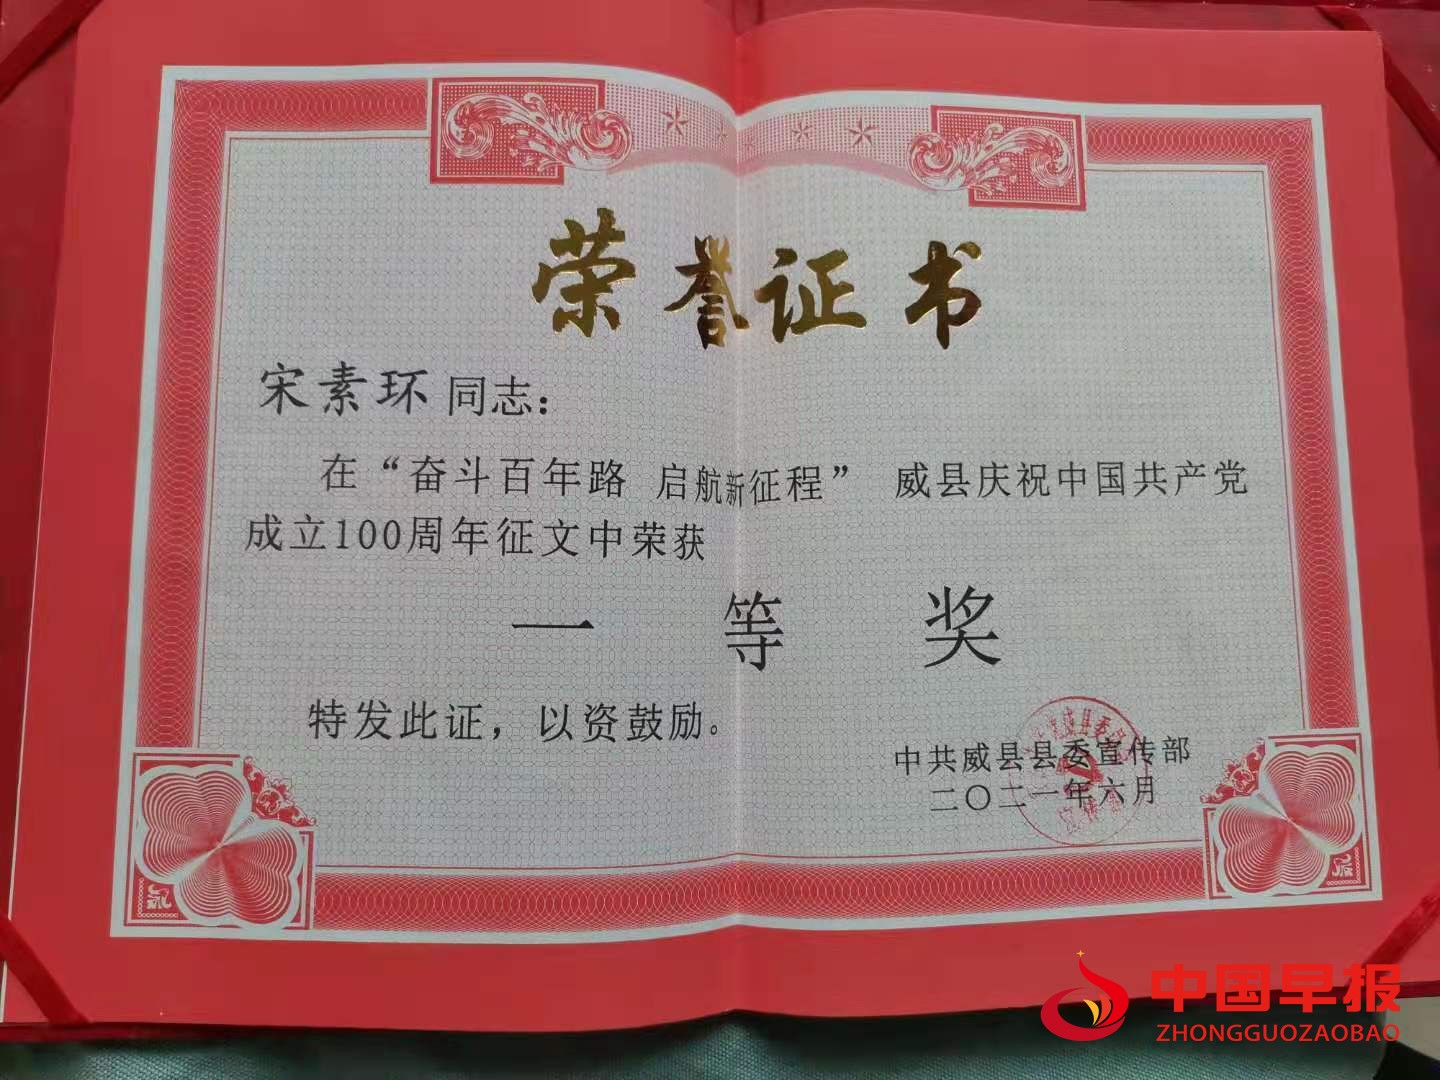 荣誉证书
宋素环同志：
在“奋斗百年路 启航新征程” 威县庆祝中国共产党
成立100周年征文中荣获
一等奖
特发此证，以资鼓励。
中共威县县委宣传部
二〇二一年六月
中国早报
ZHONGGUOZAOBAO